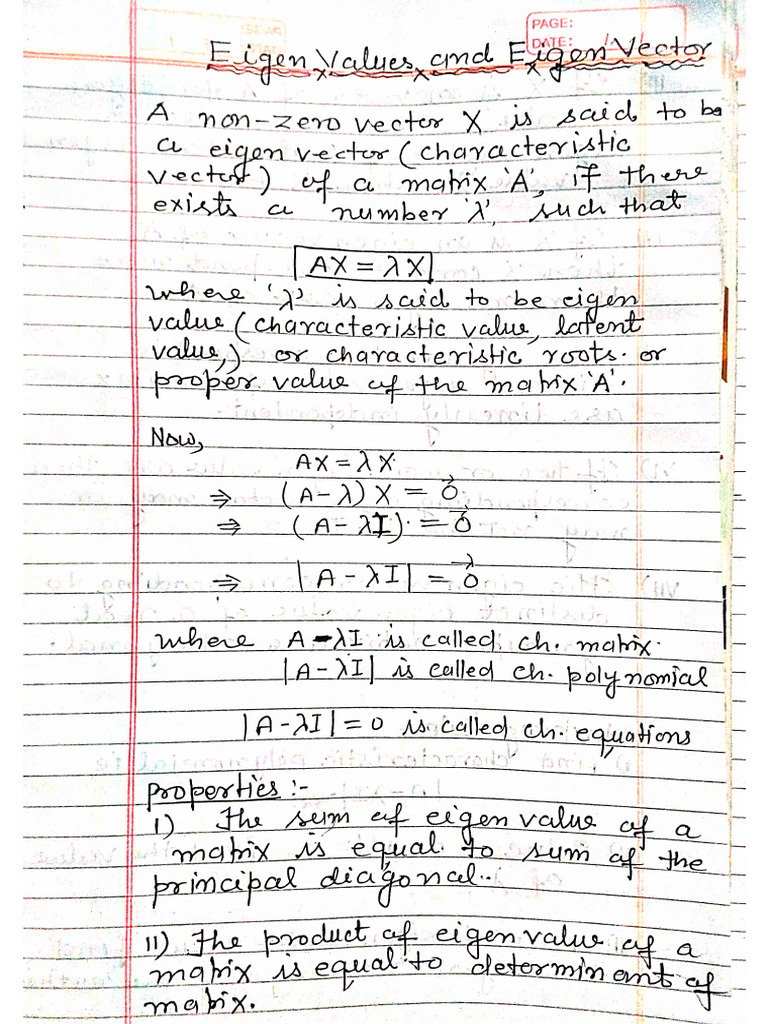 PAGE:
DATE:
Eigen Values and Eigen Vector
A non-zero vector X is said to be
a eigen vector (characteristic
vector) of a matrix 'A', if there
exists a number 'λ', such that
AX = λX
where 'λ' is said to be eigen
value (characteristic value, latent
value,) or characteristic roots. or
proper value of the matrix 'A'.
Now,
AX = λX.
⇒ (A-λ) X = 0⃗
⇒ (A-λI). = 0⃗
⇒ |A-λI| = 0⃗
where A-λI is called ch. matrix.
|A-λI| is called ch. polynomial
|A-λI| = 0 is called ch. equations
Properties :-
I) The sum of eigen value of a
matrix is equal to sum of the
principal diagonal..
II) The product of eigen value of a
matrix is equal to determinant of
matrix.